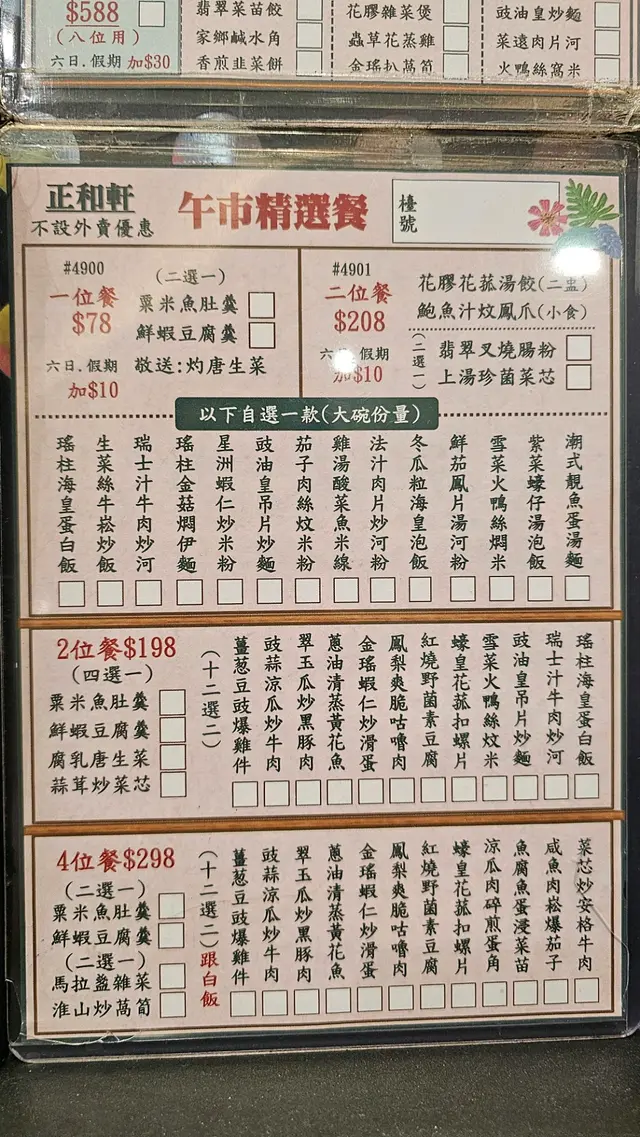 $588
(八位用)
六日.假期 加$30
翡翠菜苗餃
家鄉鹹水角
香煎韭菜餅
花膠雜菜煲
蟲草花蒸雞
金瑤扒萵筍
豉油皇炒麵
菜遠肉片河
火鴨絲窩米
正和軒
不設外賣優惠
午市精選餐
檯號
#4900
一位餐
$78
六日.假期
加$10
(二選一)
粟米魚肚羹
鮮蝦豆腐羹
敬送:灼唐生菜
#4901
二位餐
$208
六日.假期
加$10
花膠花菇湯餃(二盅)
鮑魚汁炆鳳爪(小食)
(二選一)
翡翠叉燒腸粉
上湯珍菌菜芯
以下自選一款(大碗份量)
瑤柱海皇蛋白飯
生菜絲牛崧炒飯
瑞士汁牛肉炒河
瑤柱金菇燜伊麵
星洲蝦仁炒米粉
豉油皇吊片炒麵
茄子肉絲炆米粉
雞湯酸菜魚米線
法汁肉片炒河粉
冬瓜粒海皇泡飯
鮮茄鳳片湯河粉
雪菜火鴨絲燜米
紫菜蠔仔湯泡飯
潮式靚魚蛋湯麵
2位餐$198
(四選一)
粟米魚肚羹
鮮蝦豆腐羹
腐乳唐生菜
蒜茸炒菜芯
(十二選二)
薑葱豆豉爆雞件
豉蒜涼瓜炒牛肉
翠玉瓜炒黑豚肉
蔥油清蒸黃花魚
金瑤蝦仁炒滑蛋
鳳梨爽脆咕嚕肉
紅燒野菌素豆腐
蠔皇花菇扣螺片
雪菜火鴨絲炆米
豉油皇吊片炒麵
瑞士汁牛肉炒河
瑤柱海皇蛋白飯
4位餐$298
(二選一)
粟米魚肚羹
鮮蝦豆腐羹
(二選一)
馬拉盞雜菜
淮山炒萵筍
(十二選二)跟白飯
薑葱豆豉爆雞件
豉蒜涼瓜炒牛肉
翠玉瓜炒黑豚肉
蔥油清蒸黃花魚
金瑤蝦仁炒滑蛋
鳳梨爽脆咕嚕肉
紅燒野菌素豆腐
蠔皇花菇扣螺片
涼瓜肉碎煎蛋角
魚腐魚蛋浸菜苗
咸魚肉崧爆茄子
菜芯炒安格牛肉